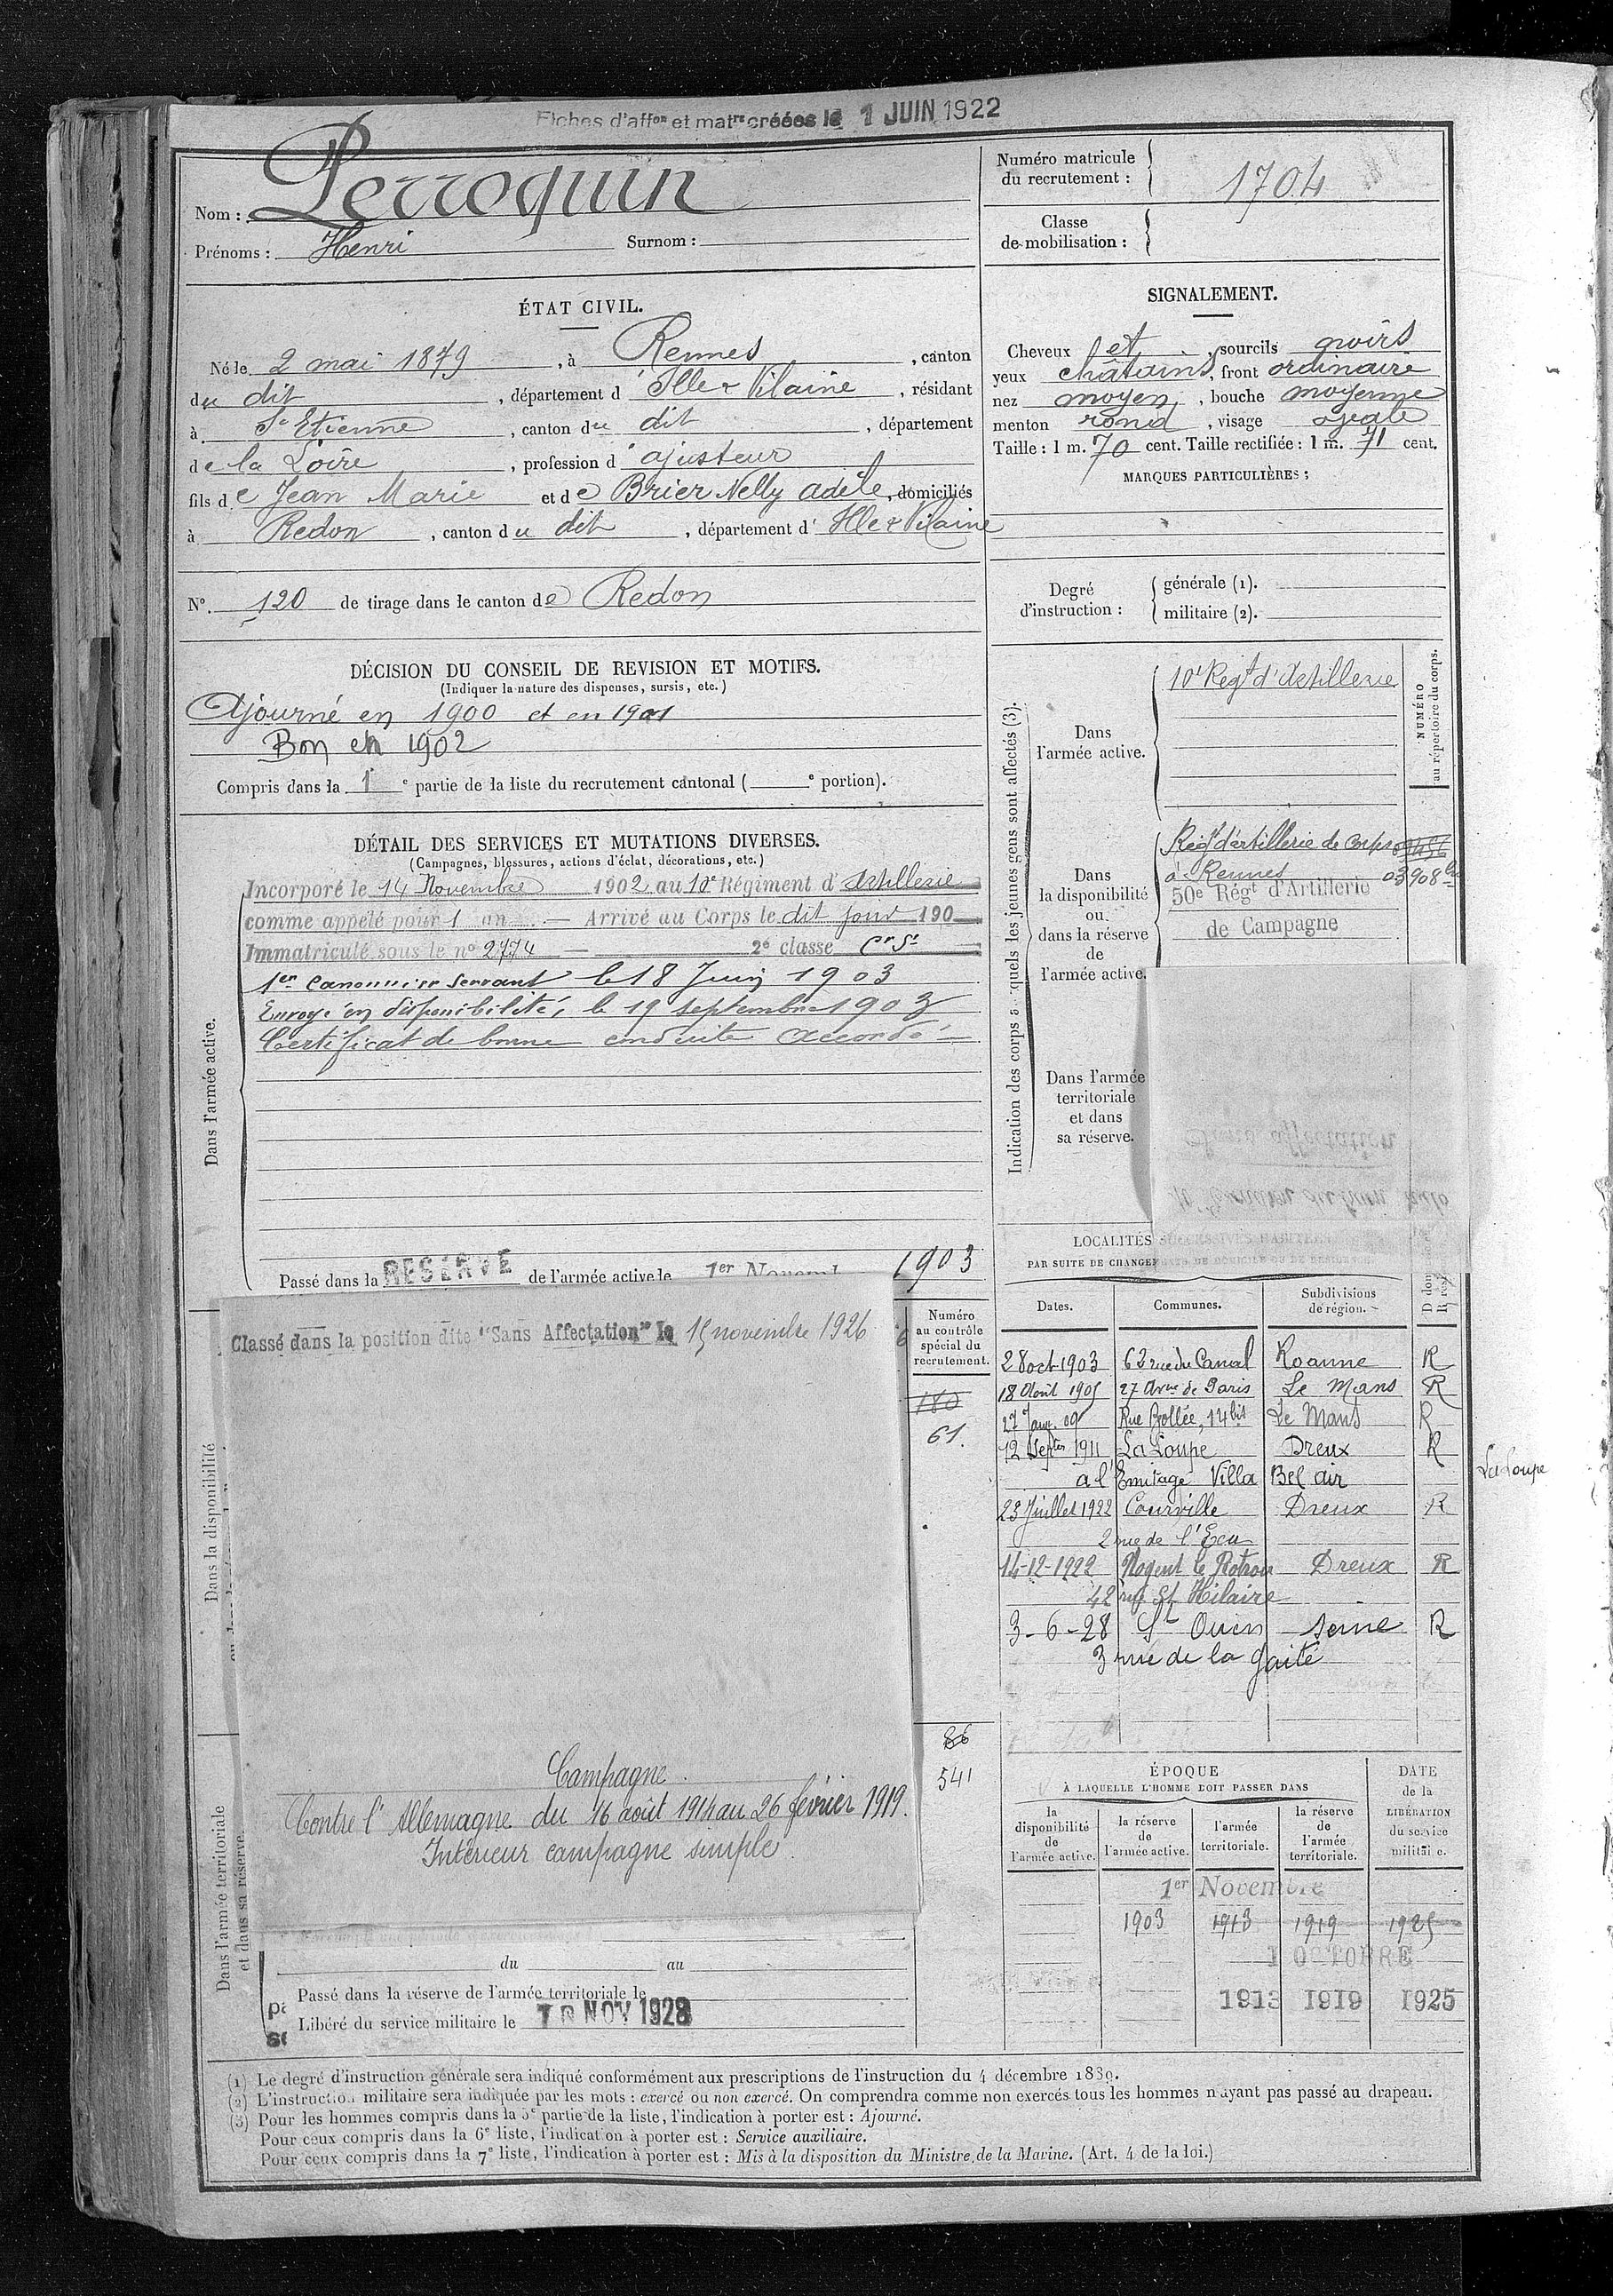 Fiches d'aff^on et mat^re créées le 1 JUIN 1922
Nom : Perroquin
Prénoms : Henri Surnom :
Numéro matricule du recrutement : 1704
Classe de mobilisation :
ÉTAT CIVIL.
Né le 2 mai 1879, à Rennes, canton
du dit, département d'Ille & Vilaine, résidant
à St Etienne, canton du dit, département
de la Loire, profession d'ajusteur
fils de Jean Marie et de Brier Nelly Adèle, domiciliés
à Redon, canton du dit, département d'Ille & Vilaine
N° 120 de tirage dans le canton de Redon
SIGNALEMENT.
Cheveux et, sourcils noirs
yeux châtains, front ordinaire
nez moyen, bouche moyenne
menton rond, visage ovale
Taille : 1 m. 70 cent. Taille rectifiée : 1 m. 71 cent.
MARQUES PARTICULIÈRES :
Degré d'instruction :
générale (1).
militaire (2).
DÉCISION DU CONSEIL DE REVISION ET MOTIFS.
(Indiquer la nature des dispenses, sursis, etc.)
Ajourné en 1900 et en 1901
Bon en 1902
Compris dans la 1e partie de la liste du recrutement cantonal ( e portion).
DÉTAIL DES SERVICES ET MUTATIONS DIVERSES.
(Campagnes, blessures, actions d'éclat, décorations, etc.)
Dans l'armée active.
Incorporé le 14 Novembre 1902 au 10e Régiment d'Artillerie
comme appelé pour 1 an — Arrivé au Corps le dit jour 190
Immatriculé sous le n° 2774 — 2e classe Cr St
1er Canonnier Servant le 18 Juin 1903
Envoyé en disponibilité, le 19 septembre 1903
Certificat de bonne conduite accordé
Passé dans la RESERVE de l'armée active le 1er Novemb 1903
Classé dans la position dite "Sans Affectation" le 15 novembre 1926
Dans la disponibilité
Campagne
Contre l'Allemagne du 16 août 1914 au 26 février 1919.
Intérieur campagne simple.
Dans l'armée territoriale et dans sa réserve.
du au
Passé dans la réserve de l'armée territoriale le
Libéré du service militaire le NOV 1928
Indication des corps auxquels les jeunes gens sont affectés (3).
NUMÉRO au répertoire du corps.
Dans l'armée active.
10e Régt d'Artillerie
Dans la disponibilité ou dans la réserve de l'armée active.
Régt d'artillerie de Corps
à Rennes 03908
50e Régt d'Artillerie
de Campagne
Dans l'armée territoriale et dans sa réserve.
Sans affectation
LOCALITÉS SUCCESSIVES HABITÉES
PAR SUITE DE CHANGEMENTS DE DOMICILE OU DE RÉSIDENCE
Numéro au contrôle spécial du recrutement.
180
61.
86
541
Dates. Communes. Subdivisions de région.
28 oct 1903 62 rue du Canal Roanne R
18 Août 1905 27 Avue de Paris Le Mans R
27 Janv. 09 Rue Bollée, 14bis Le Mans R
12 Septre 1911 La Loupe Dreux R
à l'Ermitage Villa Bel air La Loupe
23 Juillet 1922 Courville Dreux R
2 rue de l'Ecu
14-12-1922 Nogent le Rotrou Dreux R
42 rue St Hilaire
3-6-28 St Ouen Seine R
3 rue de la Gaité
ÉPOQUE
À LAQUELLE L'HOMME DOIT PASSER DANS
DATE de la LIBÉRATION du service militaire.
la disponibilité de l'armée active. la réserve de l'armée active. l'armée territoriale. la réserve de l'armée territoriale.
1er Novembre
1903 1913 1919 1925
1 OCTOBRE
1913 1919 1925
(1) Le degré d'instruction générale sera indiqué conformément aux prescriptions de l'instruction du 4 décembre 1889.
(2) L'instruction militaire sera indiquée par les mots : exercé ou non exercé. On comprendra comme non exercés tous les hommes n'ayant pas passé au drapeau.
(3) Pour les hommes compris dans la 5e partie de la liste, l'indication à porter est : Ajourné.
Pour ceux compris dans la 6e liste, l'indication à porter est : Service auxiliaire.
Pour ceux compris dans la 7e liste, l'indication à porter est : Mis à la disposition du Ministre de la Marine. (Art. 4 de la loi.)